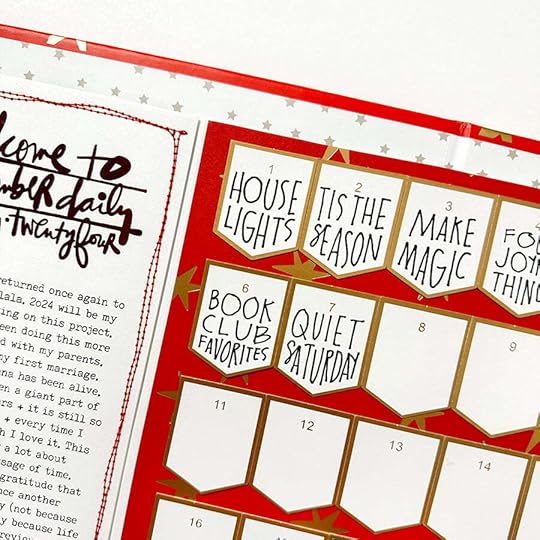 come to
mber daily
twentyfour
returned once again to
lala. 2024 will be my
ing on this project.
een doing this more
d with my parents.
ny first marriage.
nna has been alive.
en a giant part of
rs + it is still so
+ every time I
h I love it. This
a lot about
ssage of time.
gratitude that
nce another
y (not because
y because life
previou
1
HOUSE
LIGHTS
2
TIS THE
SEASON
3
MAKE
MAGIC
4
FOR
JOY
THING
6
BOOK
CLUB
FAVORITES
7
QUIET
SATURDAY
8
9
11
12
13
14
16